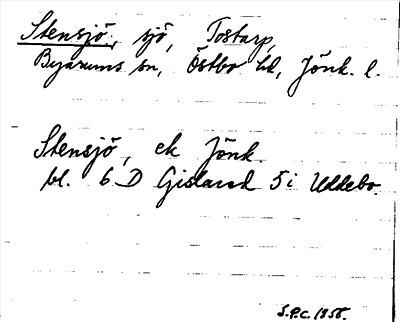 Stensjö, sjö, Tostarp,
Byarums sn, Östbo hd, Jönk. l.
Stensjö, ek Jönk.
bl. 6 D Gislaved 5 i Uddebo.
S.P.C. 1958.